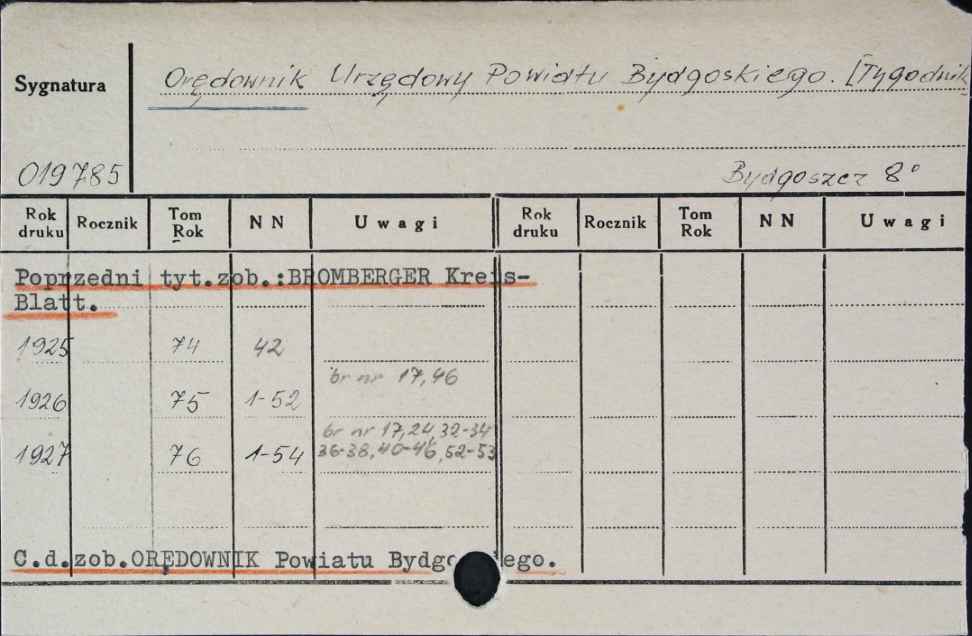 Sygnatura
Orędownik Urzędowy Powiatu Bydgoskiego. [Tygodnik
019785
Bydgoszcz 8°
Rok druku Rocznik Tom Rok NN Uwagi Rok druku Rocznik Tom Rok NN Uwagi
Poprzedni tyt.zob.:BROMBERGER Kreis-
Blatt.
1925 74 42
br nr 17,46
1926 75 1-52
br nr 17,24,32-34
1927 76 1-54 36-38,40-46,52-53
C.d.zob.ORĘDOWNIK Powiatu Bydgo ego.